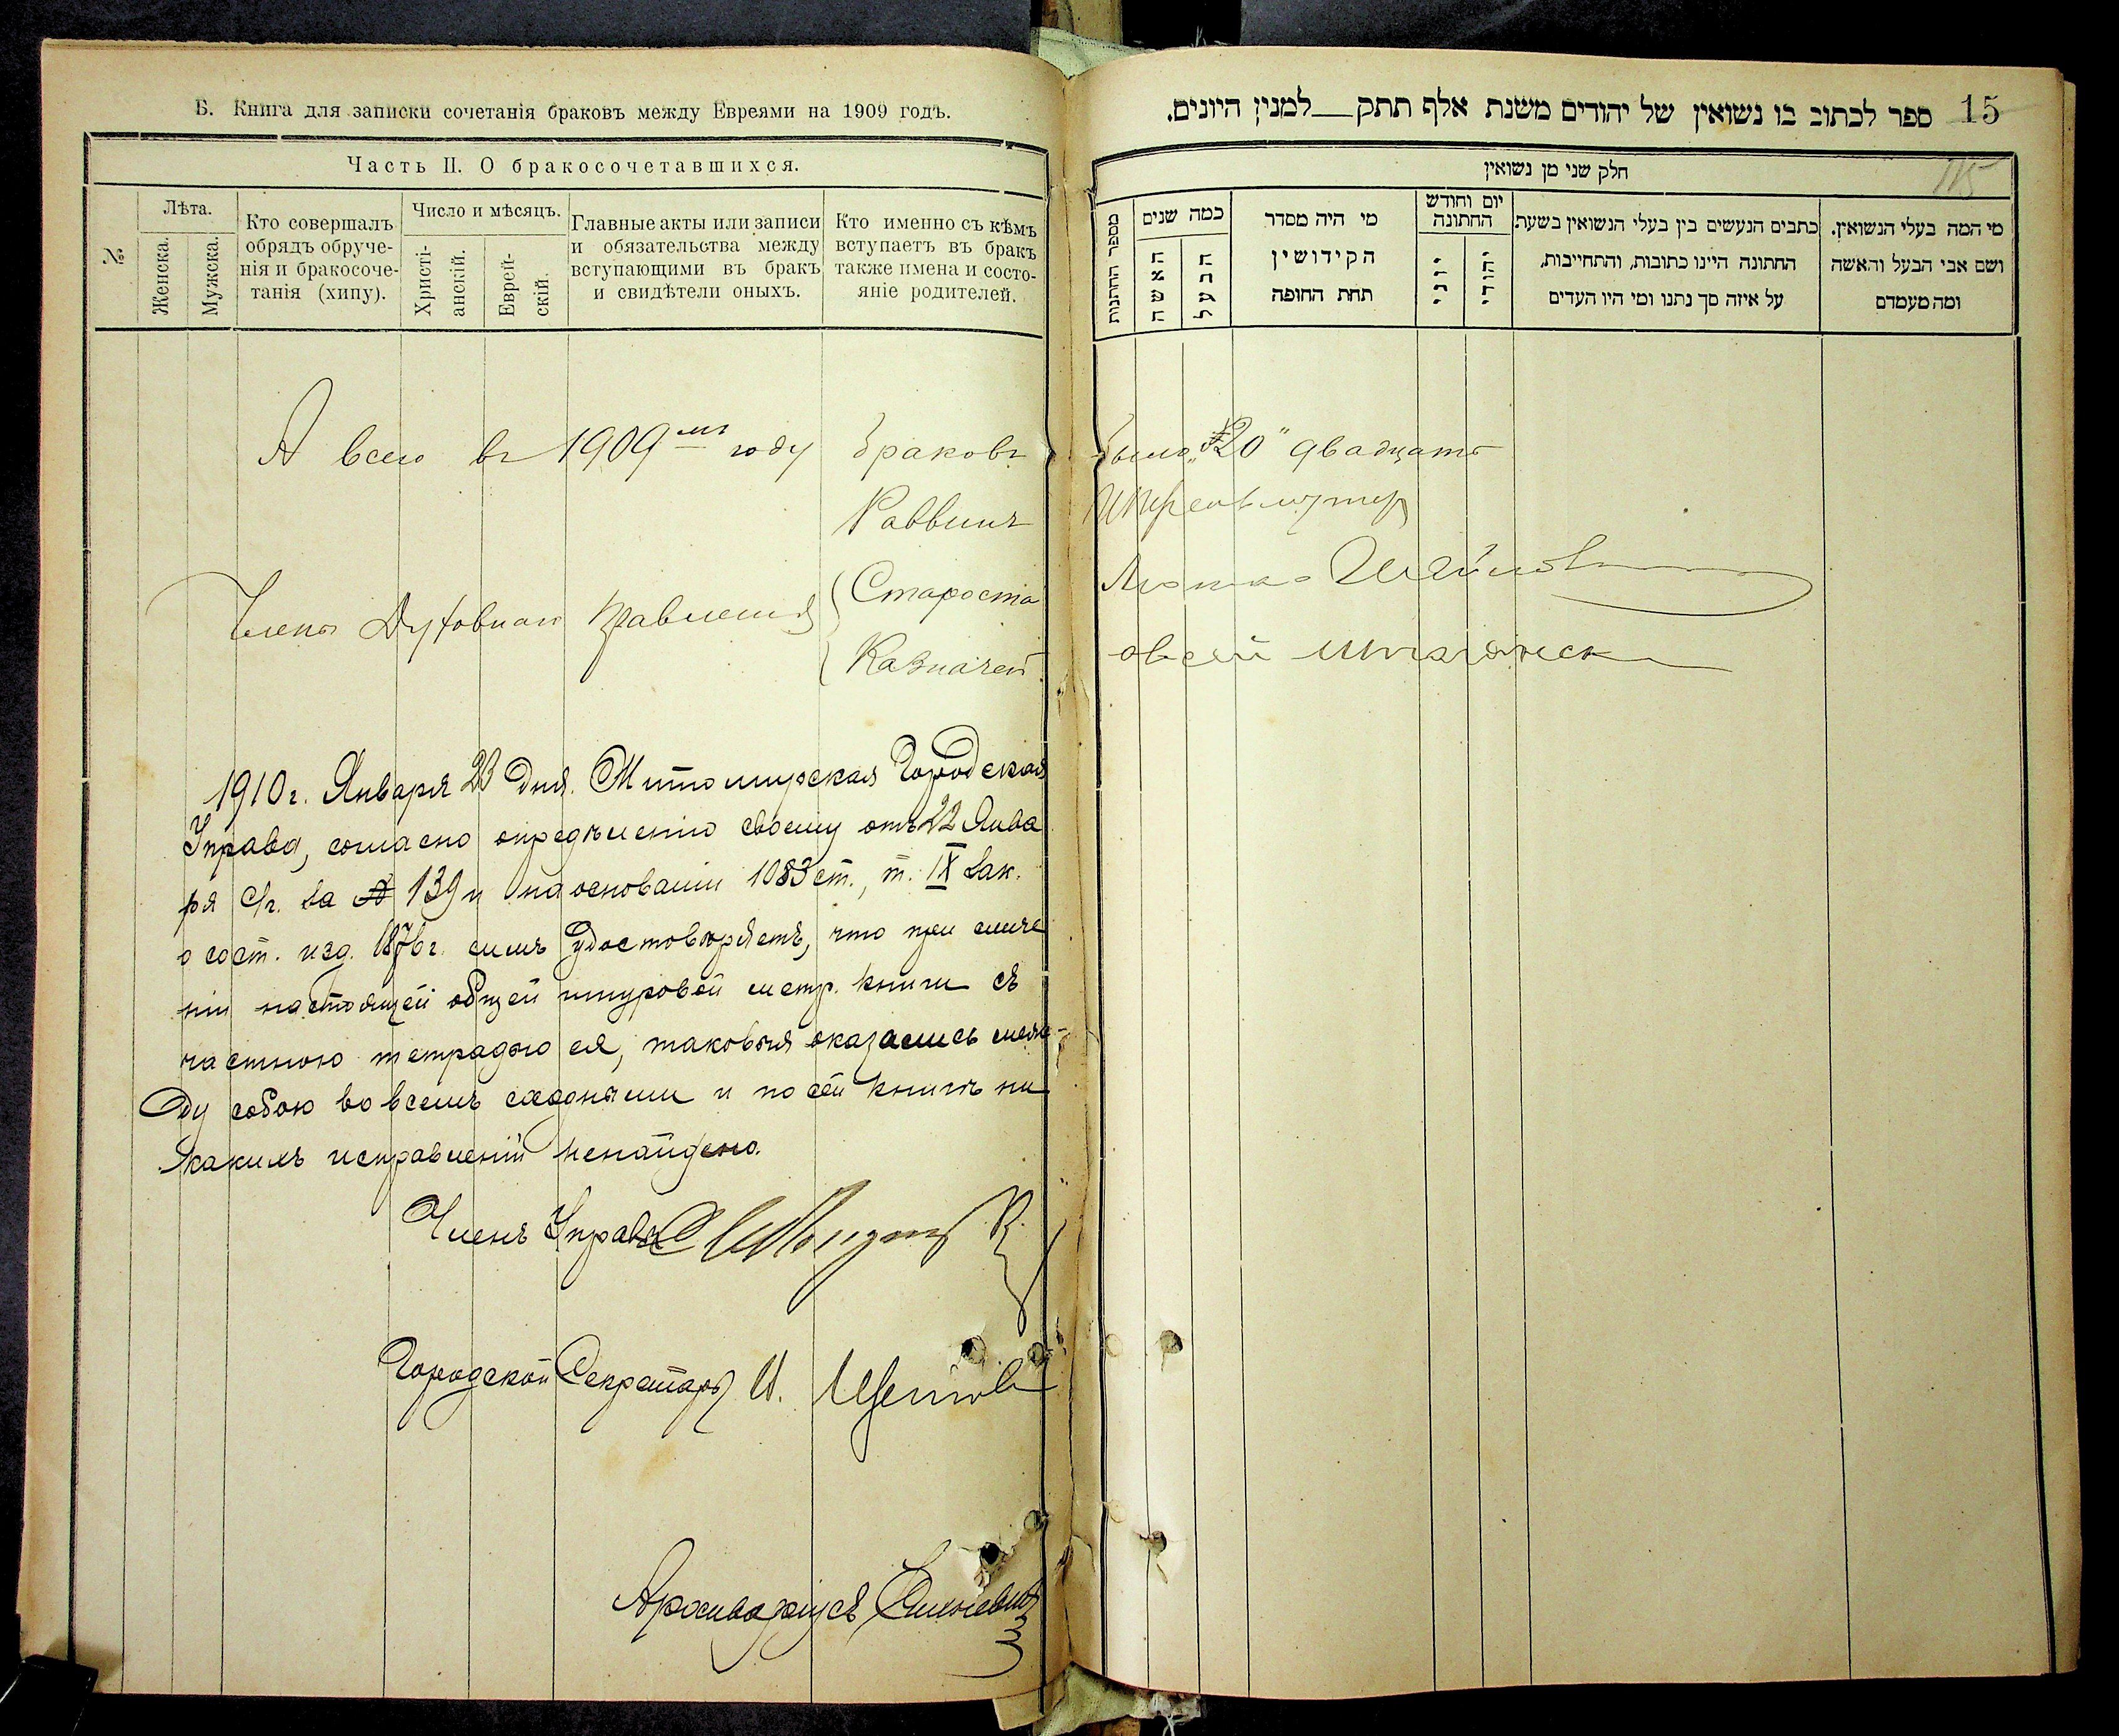 Б. Книга для записки сочетанія браковъ между Евреями на 1909 годъ.
Часть II. О бракосочетавшихся.
№
Лѣта.
Женска.
Мужска.
Кто совершалъ
обрядъ обруче-
нія и бракосоче-
танія (хипу).
Число и мѣсяцъ.
Христі-
анскій.
Еврей-
скій.
Главные акты или записи
и обязательства между
вступающими въ бракъ
и свидѣтели оныхъ.
Кто именно съ кѣмъ
вступаетъ въ бракъ
также имена и состо-
яніе родителей.
А всего въ 1909мъ году браковъ
Раввинъ
Члены Духовнаго правленія
Староста
Казначей
1910 г. Января 23 дня. Житомирская Городская
Управа, согласно опредѣленію своему отъ 22 Янва
ря с/г. за № 139 и на основаніи 1083 ст., т. IX Зак.
о сост. изд. 1876 г. симъ удостовѣряетъ, что при сличе
ніи настоящей общей шнуровой метр. книги съ
частною тетрадью ея, таковыя оказались меж-
ду собою во всемъ сходными и по сей книгѣ ни
какихъ исправленій ненайдено.
Членъ Управы
Городской Секретарь И.
Архиваріусъ
ספר לכתוב בו נשואין של יהודים משנת אלף תתק__למנין היונים.
15
חלק שני מן נשואין
מספר החתנות
כמה שנים
האשה
הבעל
מי היה מסדר
הקידושין
תחת החופה
יום וחודש
החתונה
יוני
יהודי
כתבים הנעשים בין בעלי הנשואין בשעת
החתונה היינו כתובות, והתחייבות,
על איזה סך נתנו ומי היו העדים
מי המה בעלי הנשואין.
ושם אבי הבעל והאשה
ומה מעמדם
было „20" двадцать
овсей